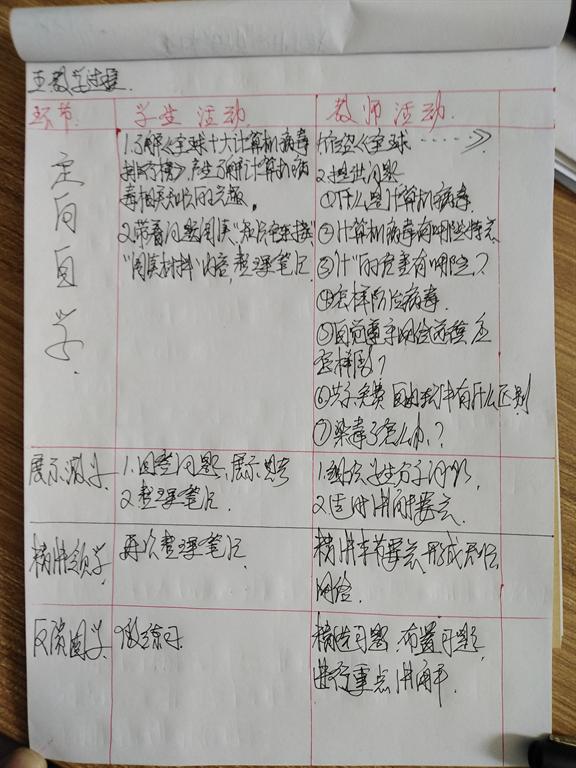 五、教学过程
环节 学生活动 教师活动
定向自学
1.了解《全球十大计算机病毒
排行榜》产生了解计算机病
毒相关知识的兴趣。
2.带着问题阅读“知识链接”
“阅读材料”内容,整理笔记
《全球……》
2.提供问题
①什么是计算机病毒
②计算机病毒有哪些特点
③计〃的危害有哪些?
④怎样防治病毒
⑤自觉遵守网络道德应
怎样做?
⑥共享免费自由软件有什么区别
⑦染毒了怎么办?
展示
1.回答问题、展示思考
2.整理笔记
1.组织学生分享
2.适时讲解要点
精讲领学
再次整理笔记
精讲本节要点,形成知识
网络
反馈固学
做练习
精选习题,布置习题,
进行重点讲评.